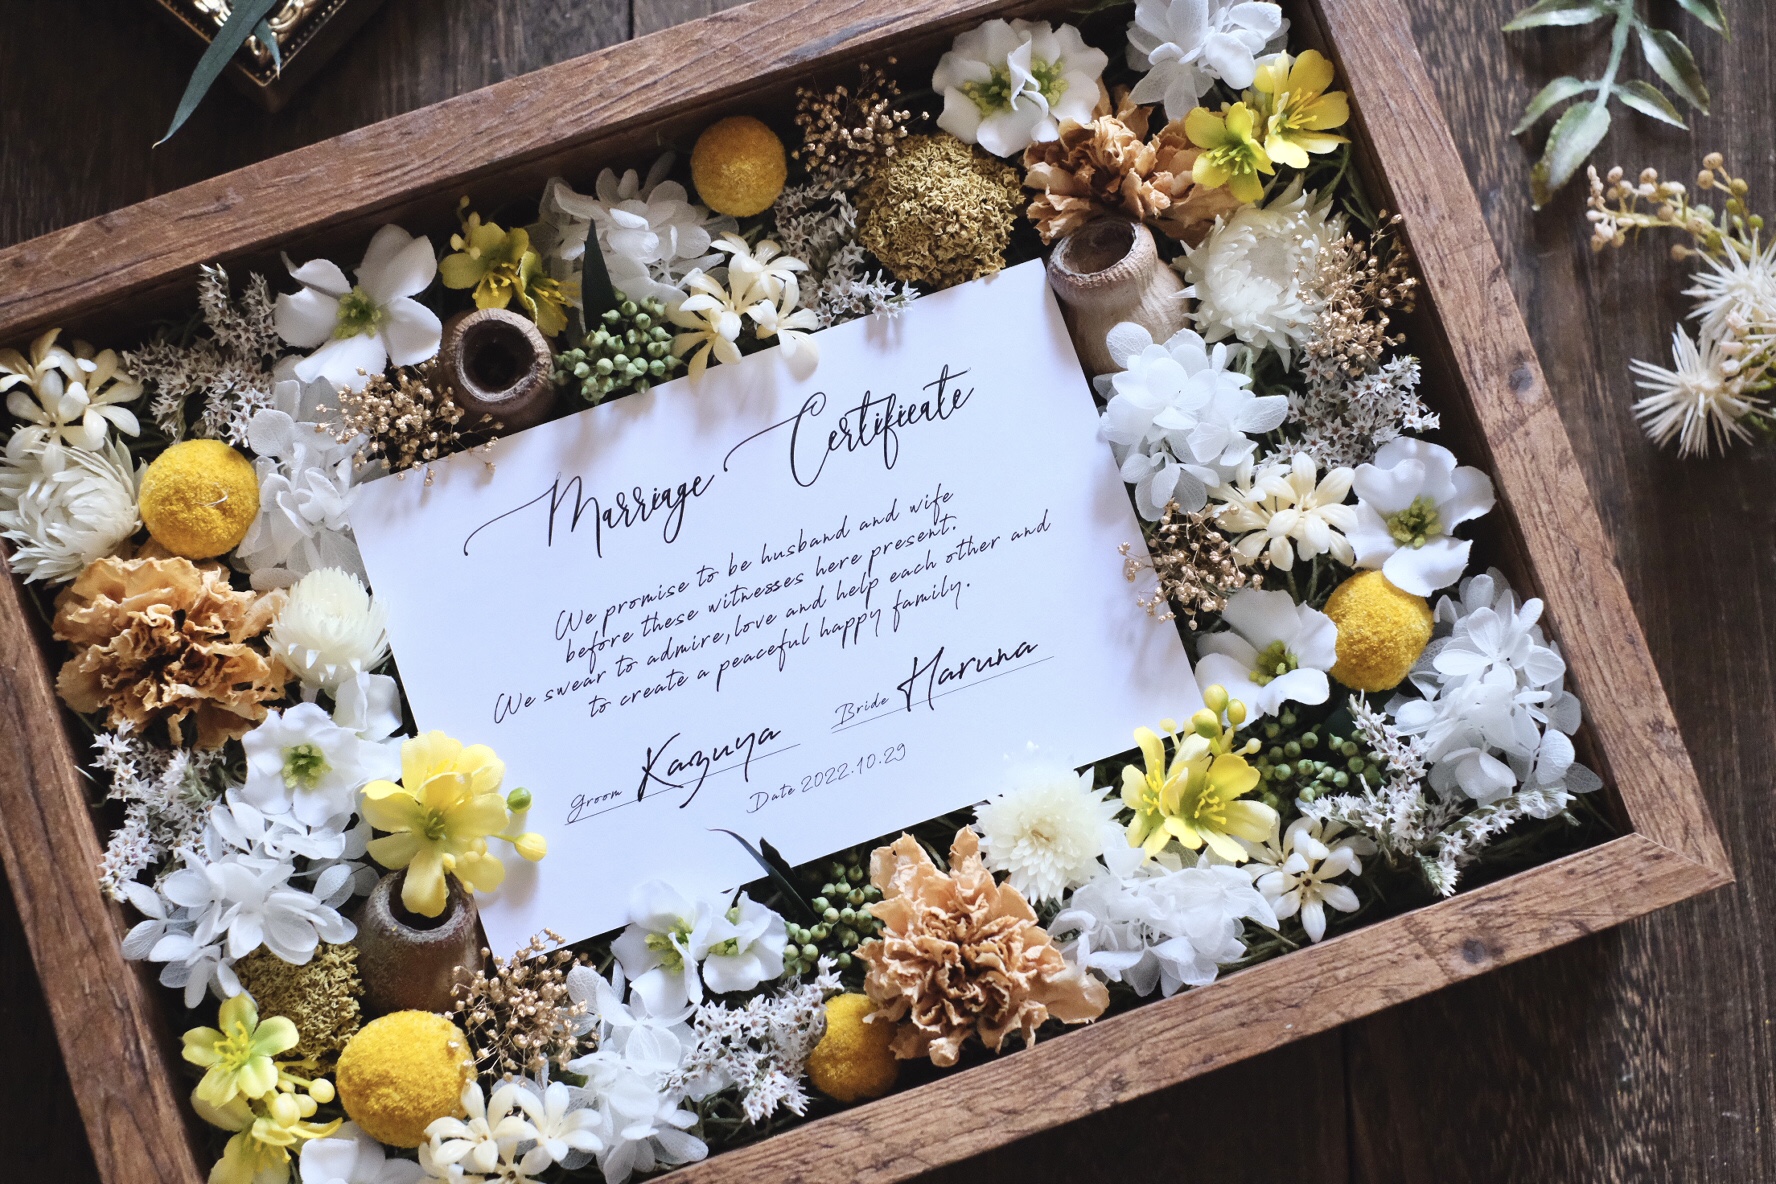 Marriage Certificate
We promise to be husband and wife
before these witnesses here present.
We swear to admire, love and help each other and
to create a peaceful happy family.
groom Kazuya
Bride Haruna
Date 2022.10.29